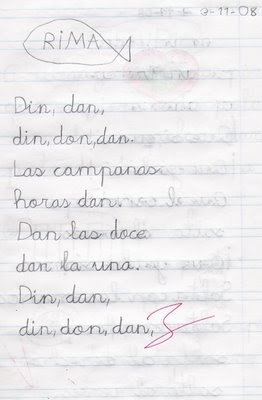 9-11-08
RIMA
Din, dan,
din, don, dan.
Las campanas
horas dan.
Dan las doce
dan la una.
Din, dan,
din, don, dan,